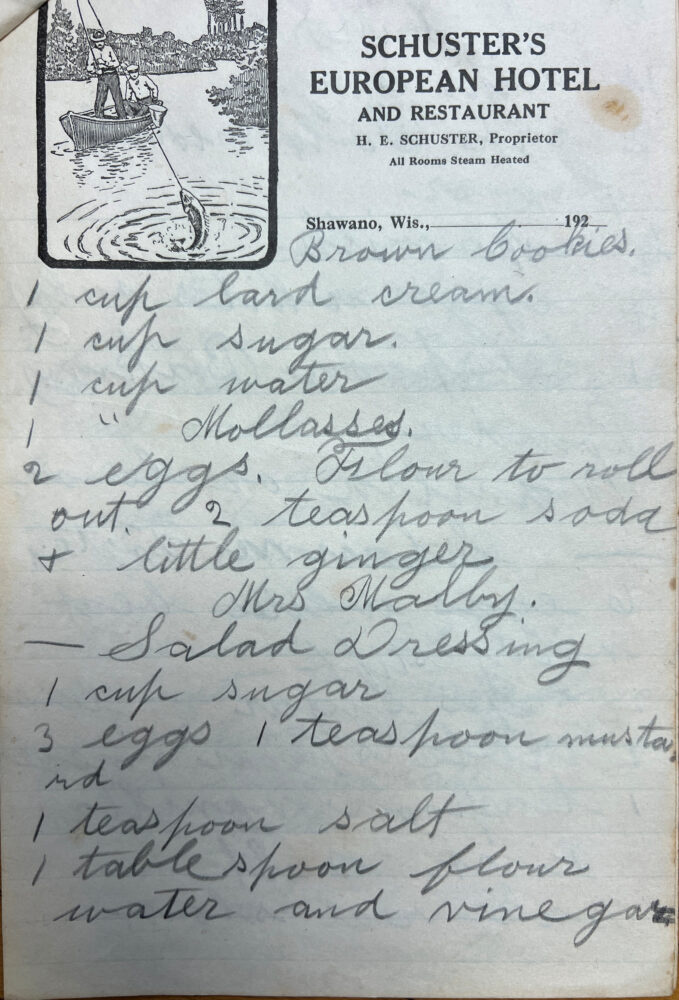 SCHUSTER'S
EUROPEAN HOTEL
AND RESTAURANT
H. E. SCHUSTER, Proprietor
All Rooms Steam Heated
Shawano, Wis., 192
Brown Cookies.
1 cup lard cream.
1 cup sugar.
1 cup water
1 " Mollasses.
2 eggs. Flour to roll
out. 2 teaspoon soda
+ little ginger
Mrs Malby.
— Salad Dressing
1 cup sugar
3 eggs 1 teaspoon musta
rd
1 teaspoon salt
1 tablespoon flour
water and vinegar